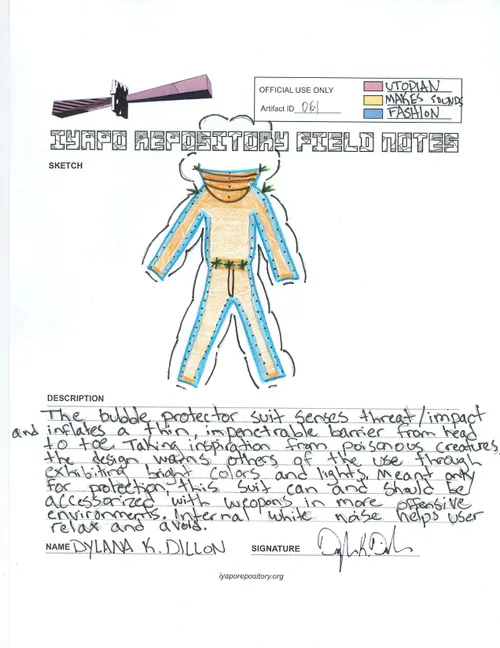 OFFICIAL USE ONLY
Artifact ID 061
UTOPIAN
MAKES SOUNDS
FASHION
IYAPO REPOSITORY FIELD NOTES
SKETCH
DESCRIPTION
The bubble protector suit senses threat/impact
and inflates a thin impenetrable barrier from head
to toe. Taking inspiration from poisonous creatures,
the design warns others of the use through
exhibiting bright colors and lights. Meant only
for protection, this suit can and should be
accessorized with weapons in more offensive
environments. Internal white noise helps user
relax and avoid.
NAME DYLANA K. DILLON
SIGNATURE
iyaporepository.org